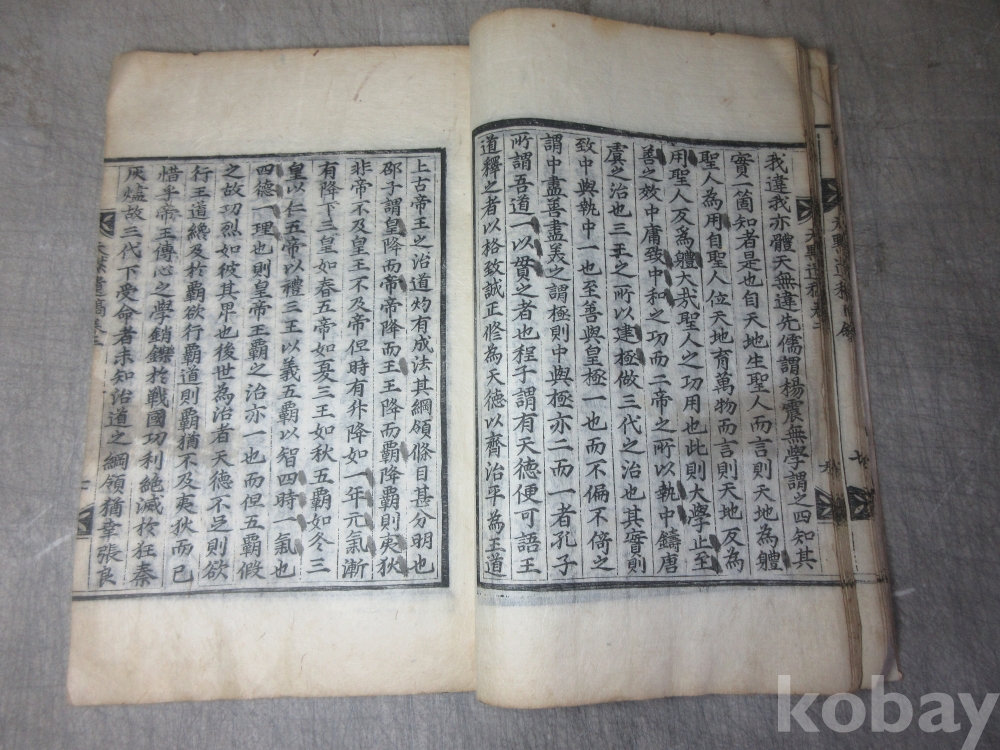 我違我亦體天無違先儒謂楊震無學謂之四知其
實一箇知者是也自天地生聖人而言則天地為體
聖人為用自聖人位天地育萬物而言則天地反為
用聖人反為體大哉聖人之功用也此則大學止至
善之效中庸致中和之功而二帝之所以執中鑄唐
虞之治也三王之所以建極做三代之治也其實則
致中與執中一也至善與皇極一也而不偏不倚之
謂中盡善盡美之謂極則中與極亦二而一者孔子
所謂吾道一以貫之者也程子謂有天德便可語王
道釋之者以格致誠正修為天德以齊治平為王道
上古帝王之治道灼有成法其綱領條目甚分明也
邵子謂皇降而帝帝降而王王降而霸降霸則夷狄
非帝不及皇王不及帝但時有升降如一年元氣漸
有降下三皇如春五帝如夏三王如秋五霸如冬三
皇以仁五帝以禮三王以義五霸以智四時一氣也
四德一理也則皇帝王霸之治亦一也而但五霸假
之故功烈如彼其卑也後世為治者天德不足則欲
行王道纔及於霸欲行霸道則霸猶不及夷狄而已
惜乎帝王傳心之學銷鑠於戰國功利絶滅於狂秦
灰爐故三代下受命者未知治道之綱領猶幸張良
kobay